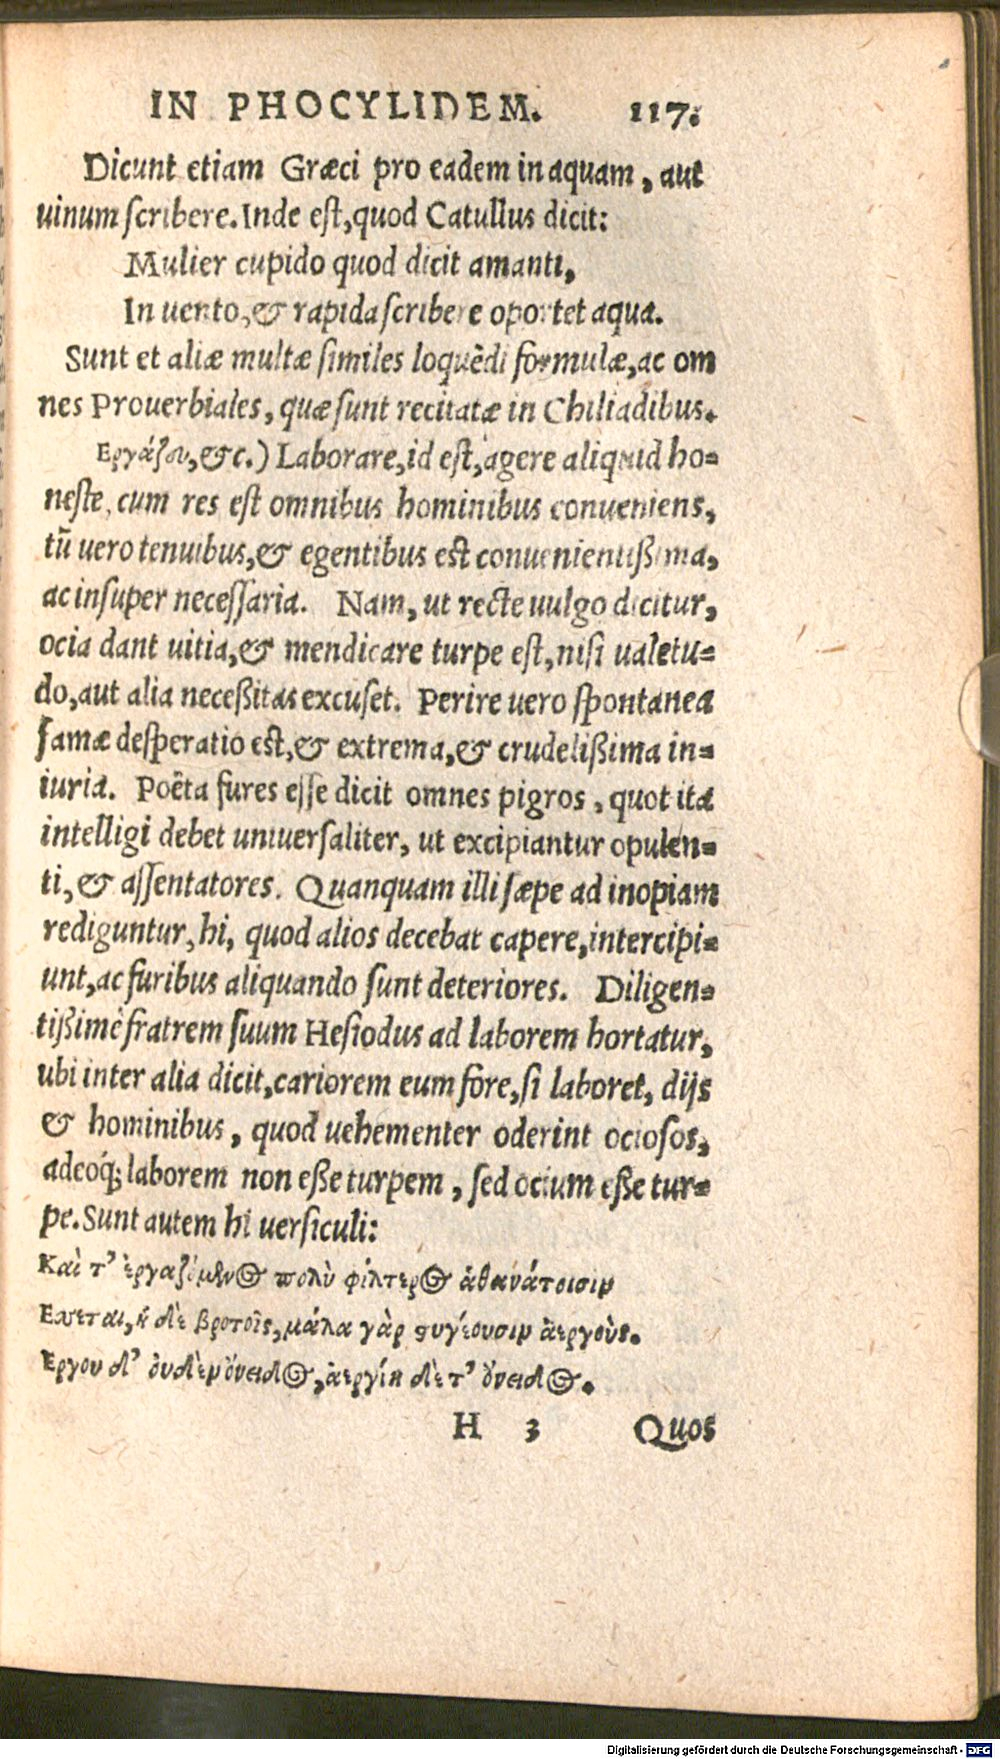 IN PHOCYLIDEM. 117.
Dicunt etiam Græci pro eadem in aquam, aut
uinum ſcribere. Inde eſt, quod Catullus dicit:
Mulier cupido quod dicit amanti,
In uento, & rapida ſcribere oportet aqua.
Sunt et aliæ multæ ſimiles loquẽdi formulæ, ac om
nes Prouerbiales, quæ ſunt recitatæ in Chiliadibus.
Εργάζου, &c.) Laborare, id eſt, agere aliquid ho-
neſte, cum res eſt omnibus hominibus conueniens,
tũ uero tenuibus, & egentibus eſt conuenientißima,
ac inſuper neceſſaria. Nam, ut recte uulgo dicitur,
ocia dant uitia, & mendicare turpe eſt, niſi ualetu-
do, aut alia neceßitas excuſet. Perire uero ſpontanea
famæ deſperatio eſt, & extrema, & crudelißima in-
iuria. Poëta fures eſſe dicit omnes pigros, quot ita
intelligi debet uniuerſaliter, ut excipiantur opulen-
ti, & aſſentatores. Quanquam illi ſæpe ad inopiam
rediguntur, hi, quod alios decebat capere, intercipi-
unt, ac furibus aliquando ſunt deteriores. Diligen-
tißimè fratrem ſuum Heſiodus ad laborem hortatur,
ubi inter alia dicit, cariorem eum fore, ſi laboret, dijs
& hominibus, quod uehementer oderint ocioſos,
adeoq́; laborem non eße turpem, ſed ocium eße tur-
pe. Sunt autem hi uerſiculi:
Καὶ τ' ἐργαζόμενος πολὺ φίλτερος ἀθανάτοισιν
Εσεται, ἠ δὲ βροτοῖς, μάλα γὰρ στυγέουσιν ἀεργοὺς.
Εργου δ' ὀυδὲν ὄνειδος, ἀεργίη δὲ τ' ὄνειδος.
H 3 Quos
Digitalisierung gefördert durch die Deutsche Forschungsgemeinschaft - DFG